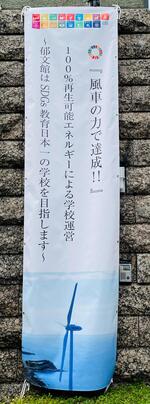 『風車の力で達成!!』
100%再生可能エネルギーによる学校運営
～郁文館はSDGs教育日本一の学校を目指します～